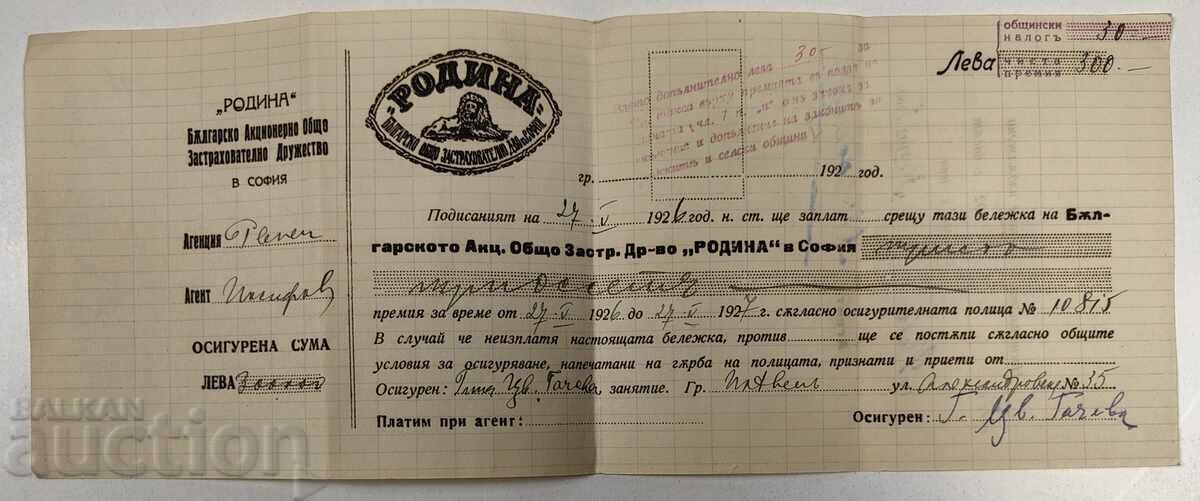 „РОДИНА“
Бѫлгарско Акционерно Общо
Застрахователно Дружество
В СОФИЯ
Агенция Pleven
Агент
ОСИГУРЕНА СУМА
ЛЕВА
„РОДИНА“
БѪЛГАРСКО ОБЩО ЗАСТРАХОВАТЕЛНО
общински налогъ 30
Лева чиста премия 300.—
допълнително лева 30- за
върху премията въ полза на
чл.
и допълнение на законитѣ за
и селски общини
гр. 192 год.
Подисаният на 27. V 1926 год. н. ст. ще заплат срещу тази бележка на Бѫл-
гарското Акц. Общо Застр. Др-во „РОДИНА“ в София триста
тридесеть
премия за време от 27. V 1926 до 27. V 1927 г. сѫгласно осигурителната полица № 10815
В случай че неизплатя настоящата бележка, против ще се постѫпи сѫгласно общите
условия за осигуряване, напечатани на гѫрба на полицата, признати и приети от
Осигурен: Цв. Гачева, занятие. Гр. Плѣвенъ ул. Александровска № 35
Платим при агент: Осигурен: Г. Цв. Гачева
BALKAN
auction